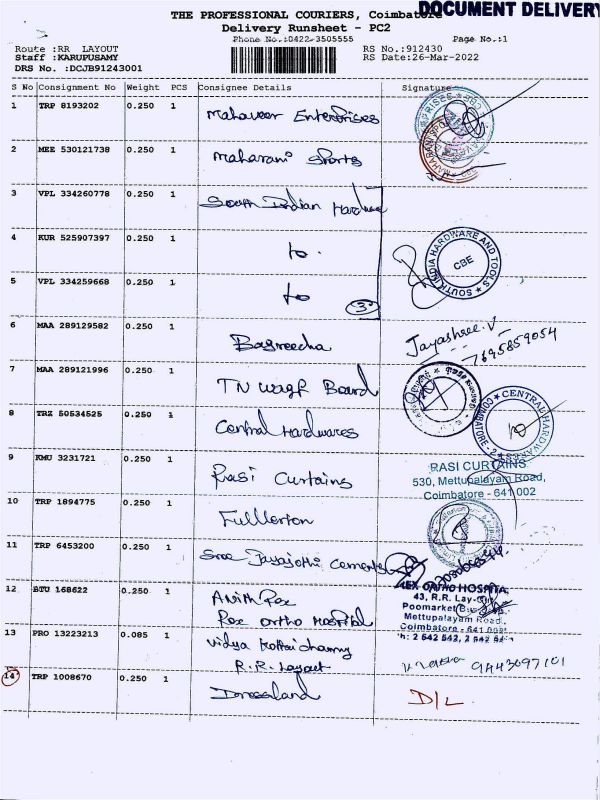 DOCUMENT DELIVERY
THE PROFESSIONAL COURIERS, Coimbatore
Delivery Runsheet - PC2
Phone No.:0422-3505555 Page No.:1
Route :RR LAYOUT RS No.:912430
Staff :KARUPUSAMY RS Date:26-Mar-2022
DRS No. :DCJB91243001
S No Consignment No Weight PCS Consignee Details Signature
1 TRP 8193202 0.250 1 Mahaveer Enterprises
2 MEE 530121738 0.250 1 Maharani Sports
3 VPL 334260778 0.250 1 South Indian Hardware
4 KUR 525907397 0.250 1 to.
SOUTH INDIA HARDWARE AND TOOLS CBE
5 VPL 334259668 0.250 1 to 3
6 MAA 289129582 0.250 1 Bagreecha Jayashree.V
7695859054
7 MAA 289121996 0.250 1 TN Waqf Board
8 TRZ 50534525 0.250 1 Central Hardwares
CENTRAL HARDWARE COIMBATORE - 2
9 KMU 3231721 0.250 1 Rasi Curtains
RASI CURTAINS
530, Mettupalayam Road,
Coimbatore - 641 002
10 TRP 1894775 0.250 1 Fullerton
11 TRP 6453200 0.250 1 Sree Jayajothi Cements
12 BTU 168622 0.250 1
Rex Ortho Hospital
REX ORTHO HOSPITAL
43, R.R. Lay-Out
Poomarket
Mettupalayam Road,
Coimbatore - 641 002
Ph: 2 542 542, 2 542
13 PRO 13223213 0.085 1 Vidya
R.R. Layout
9443097101
14 TRP 1008670 0.250 1 D/L